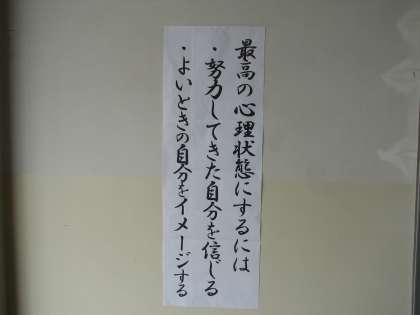 最高の心理状態にするには
・努力してきた自分を信じる
・よいときの自分をイメージする